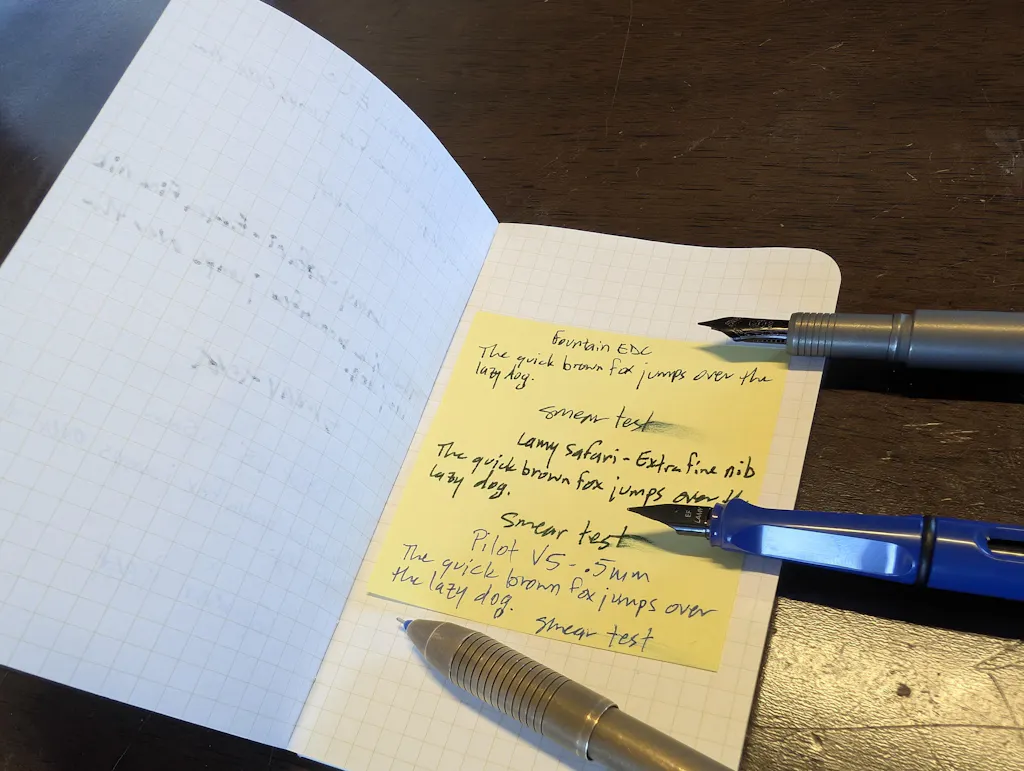 Fountain EDC
The quick brown fox jumps over the
lazy dog.
smear test
Lamy Safari - Extra fine nib
The quick brown fox jumps over the
lazy dog.
smear test
Pilot V5 - .5mm
The quick brown fox jumps over
the lazy dog.
smear test
EF
LAMY